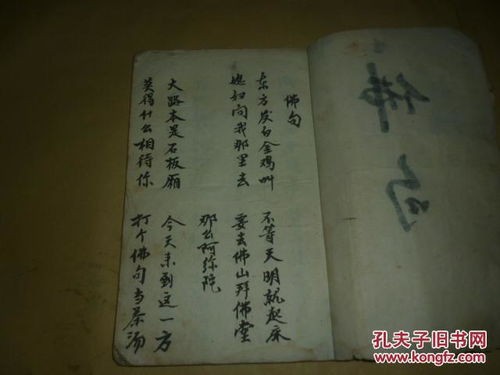 佛句
佛句
东方发白金鸡叫 不等天明就起床
媳妇问我那里去 要去佛山拜佛堂
那么阿弥陀
大路本是石板厢 今天来到这一方
莫得什么相待你 打个佛句当茶汤
孔夫子旧书网
www.kongfz.com